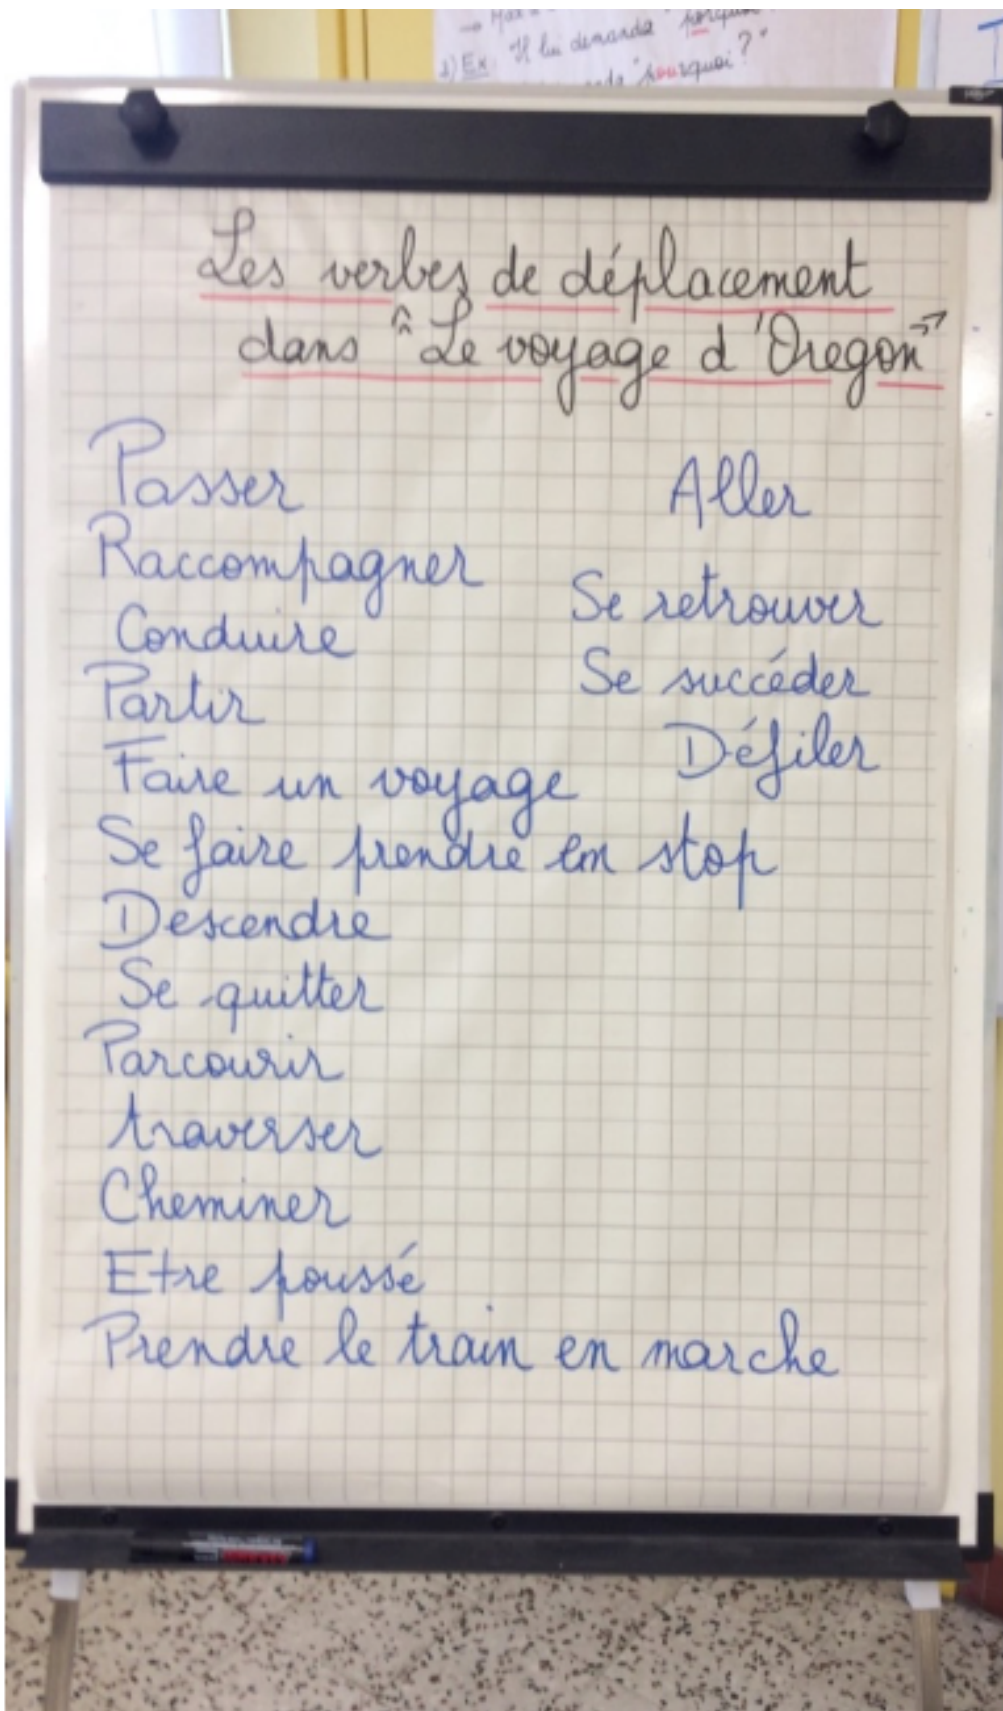 1) Ex: Il lui demanda
"pourquoi ?"
Les verbes de déplacement
dans "Le voyage d'Oregon"
Passer
Raccompagner
Conduire
Partir
Faire un voyage
Se faire prendre en stop
Descendre
Se quitter
Parcourir
traverser
Cheminer
Etre poussé
Prendre le train en marche
Aller
Se retrouver
Se succéder
Défiler